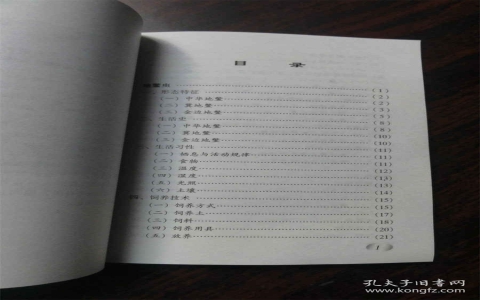 目 录
形态特征 (1)
(一) 中华地鳖 (2)
(二) 冀地鳖 (2)
(三) 金边地鳖 (3)
生活史 (5)
(一) 中华地鳖 (8)
(二) 冀地鳖 (8)
(三) 金边地鳖 (10)
生活习性 (10)
(一) 栖息与活动规律 (11)
(二) 食物 (11)
(三) 温度 (11)
(四) 湿度 (12)
(五) 光照 (13)
(六) 土壤
四、饲养技术 (15)
(一) 饲养方式 (15)
(二) 饲养土 (17)
(三) 饲料 (18)
(四) 饲养用具 (20)
(五) 放养 (21)
1
孔夫子旧书网
www.kongfz.com